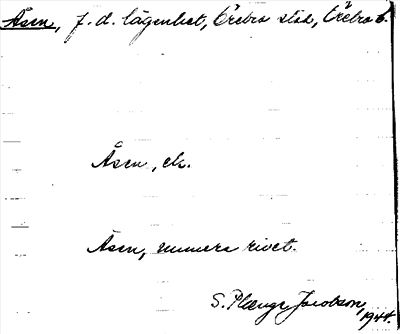 Åsen, f.d. lägenhet, Örebro stad, Örebro l.
Åsen, ek.
Åsen, numera rivet.
S. Plænge Jacobson,
1944.